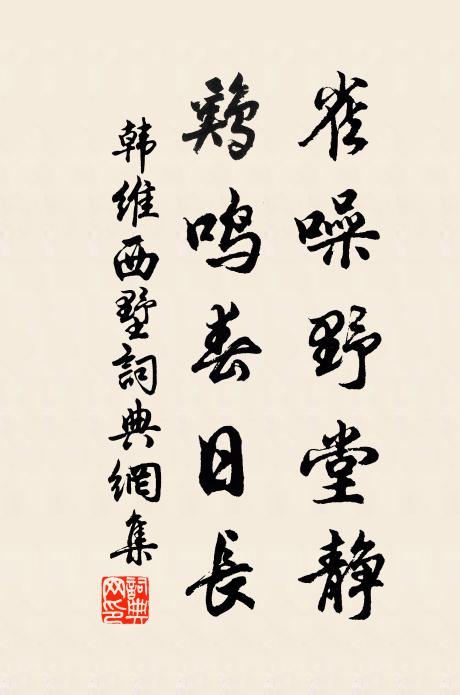 雀噪野堂静
鸡鸣春日長
韩维西墅詞典網集
詞典网印